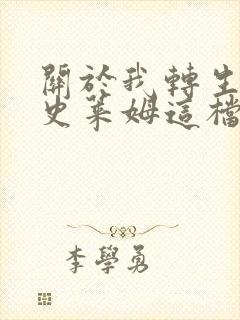 關於我轉生
史萊姆這檔
李學勇